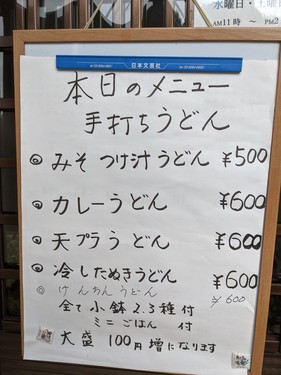 水曜日・土曜
AM11時 〜 PM2
日本文芸社
本日のメニュー
手打ちうどん
◎ みそつけ汁うどん ¥500
◎ カレーうどん ¥600
◎ 天プラうどん ¥600
◎ 冷したぬきうどん ¥600
◎ けんちんうどん ¥600
全て小鉢2.3種付
ミニごはん 付
大盛 100円増になります